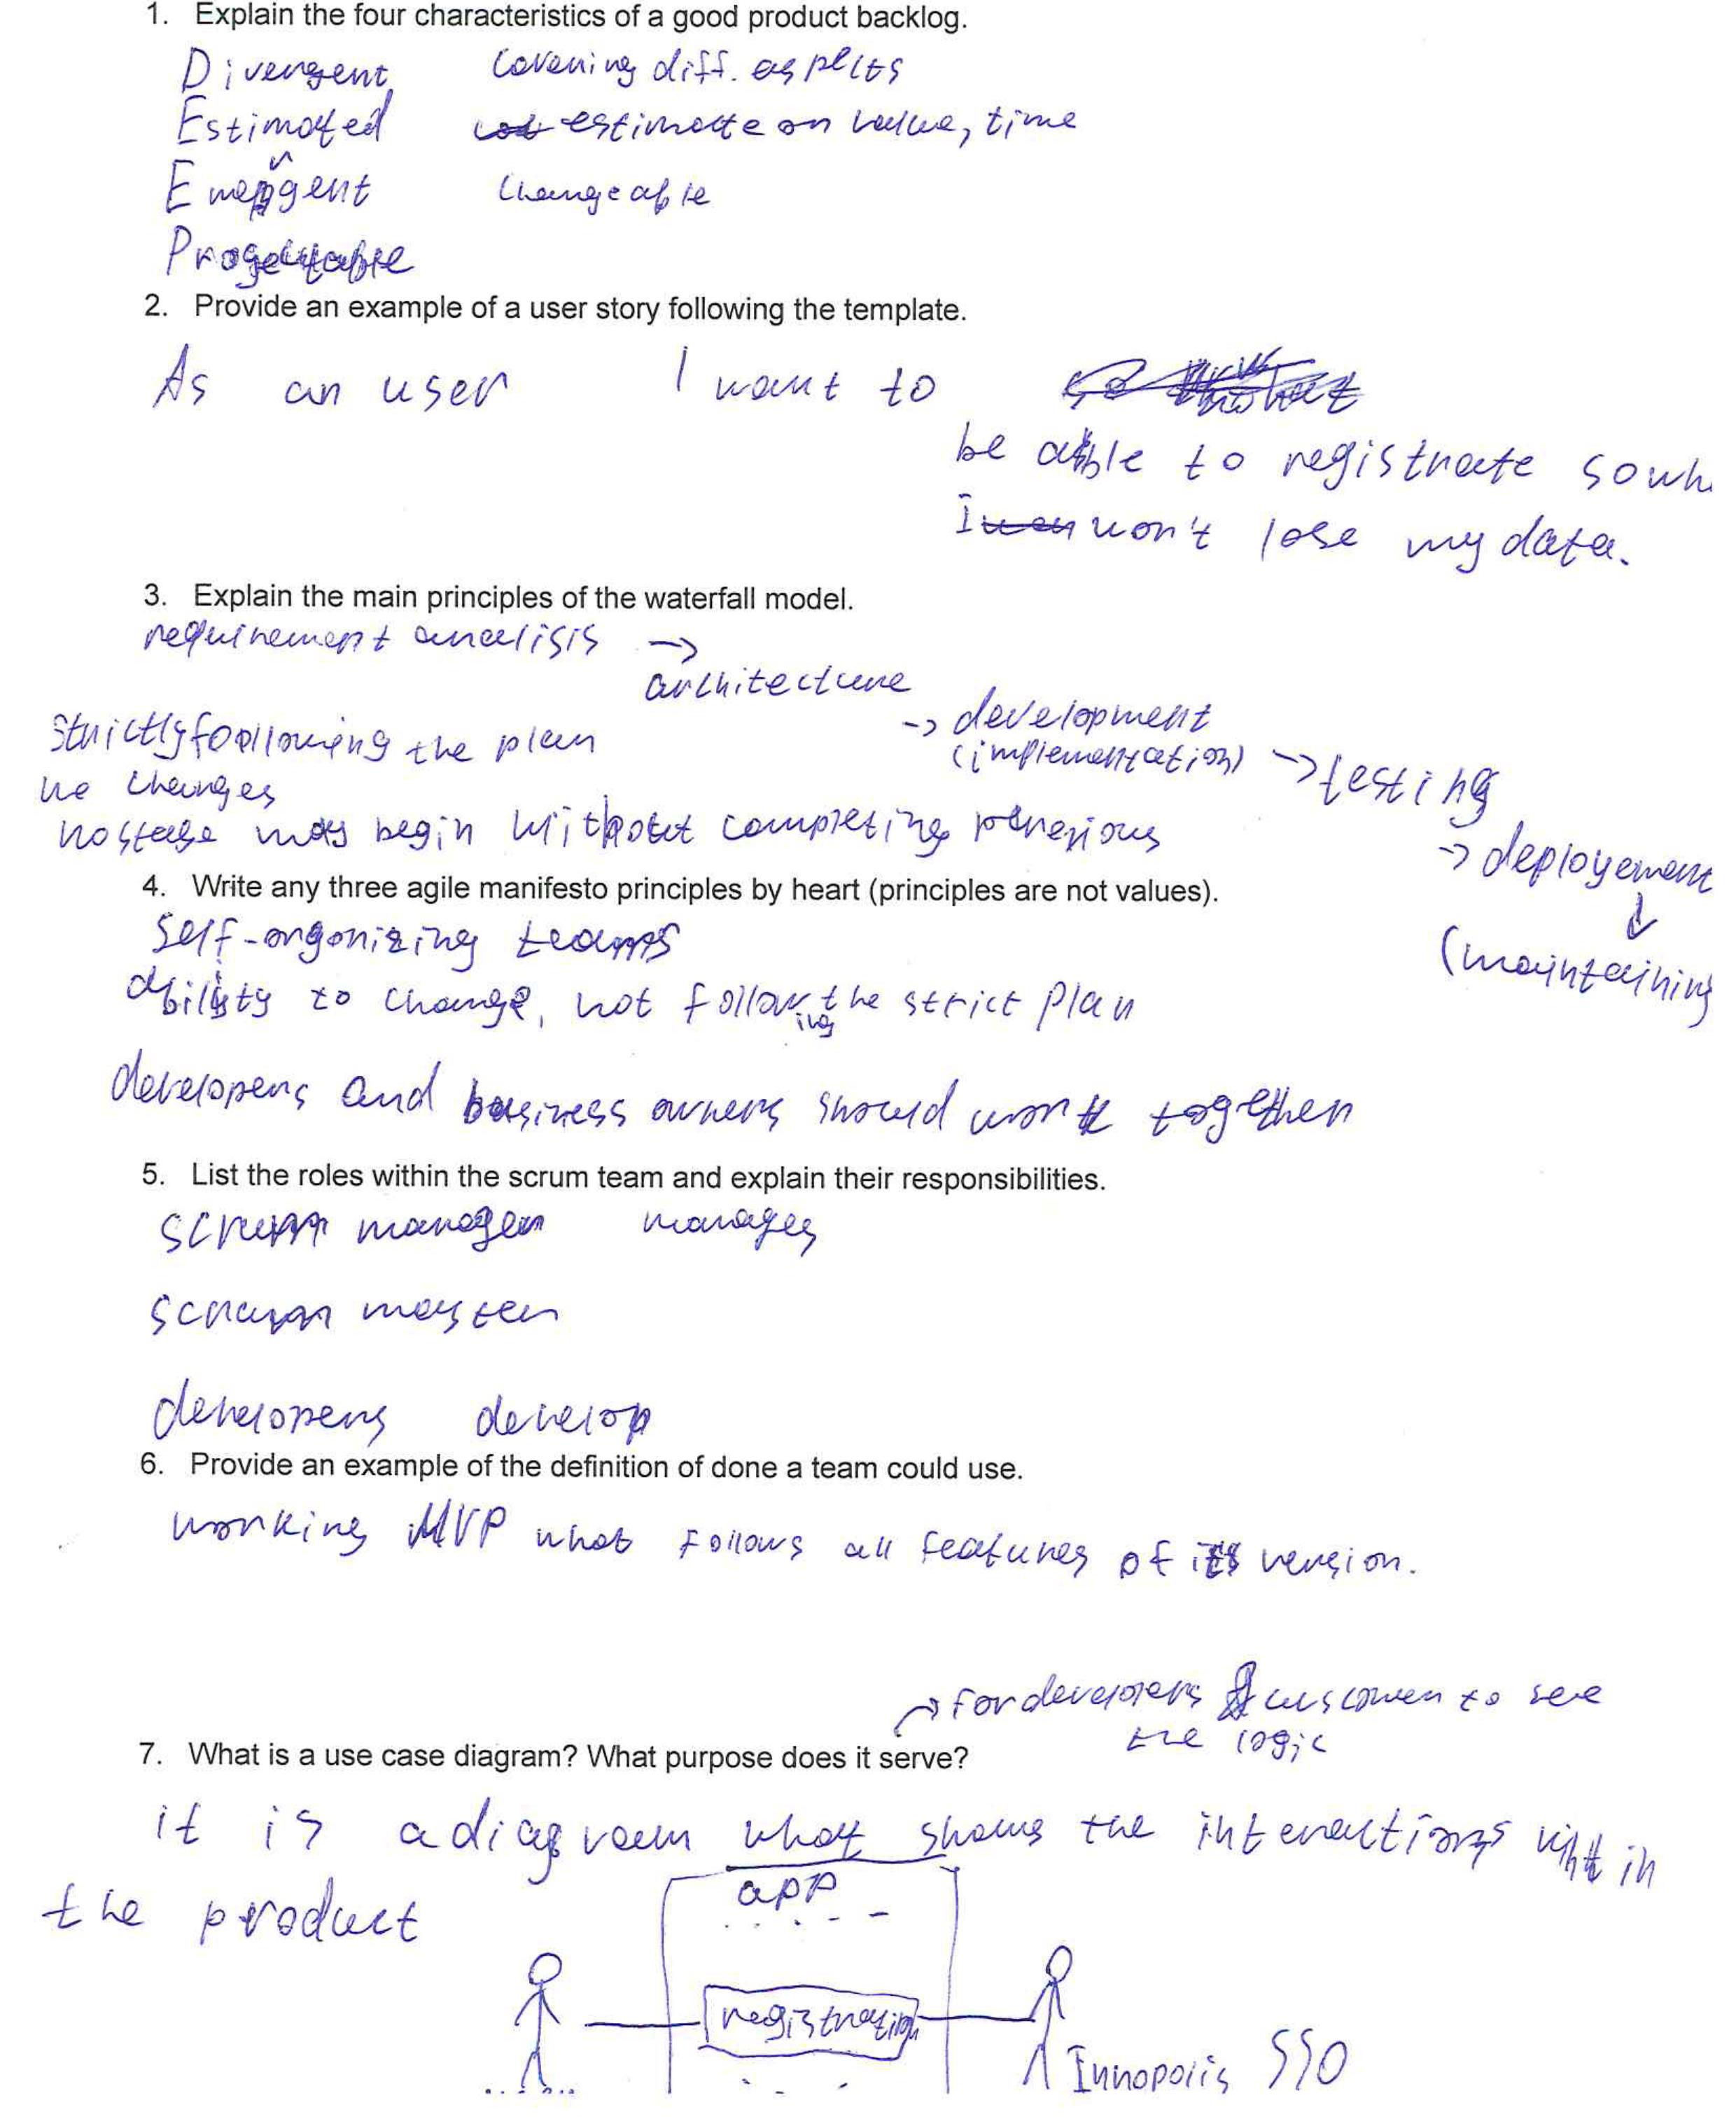 1. Explain the four characteristics of a good product backlog.
Divergent covering diff. aspects
Estimated estimate on value, time
Emergent changeable
2. Provide an example of a user story following the template.
As an user I want to
be able to registrate so wh
I won't lose my data.
3. Explain the main principles of the waterfall model.
requirement analisis →
architecture
→ development
(implementation) → testing
→ deployement
↓
(maintaining
Strictly following the plan
no changes
no stage may begin without completing previous
4. Write any three agile manifesto principles by heart (principles are not values).
self-orgonizing teams
ability to change, not following the strict plan
developers and business owners should work together
5. List the roles within the scrum team and explain their responsibilities.
scrum manager manages
scrum master
developers develop
6. Provide an example of the definition of done a team could use.
working MVP what follows all features of its version.
→ for developers & customer to see
the logic
7. What is a use case diagram? What purpose does it serve?
it is a diagram what shows the interactions within
the product
app
registration
Innopolis SSO